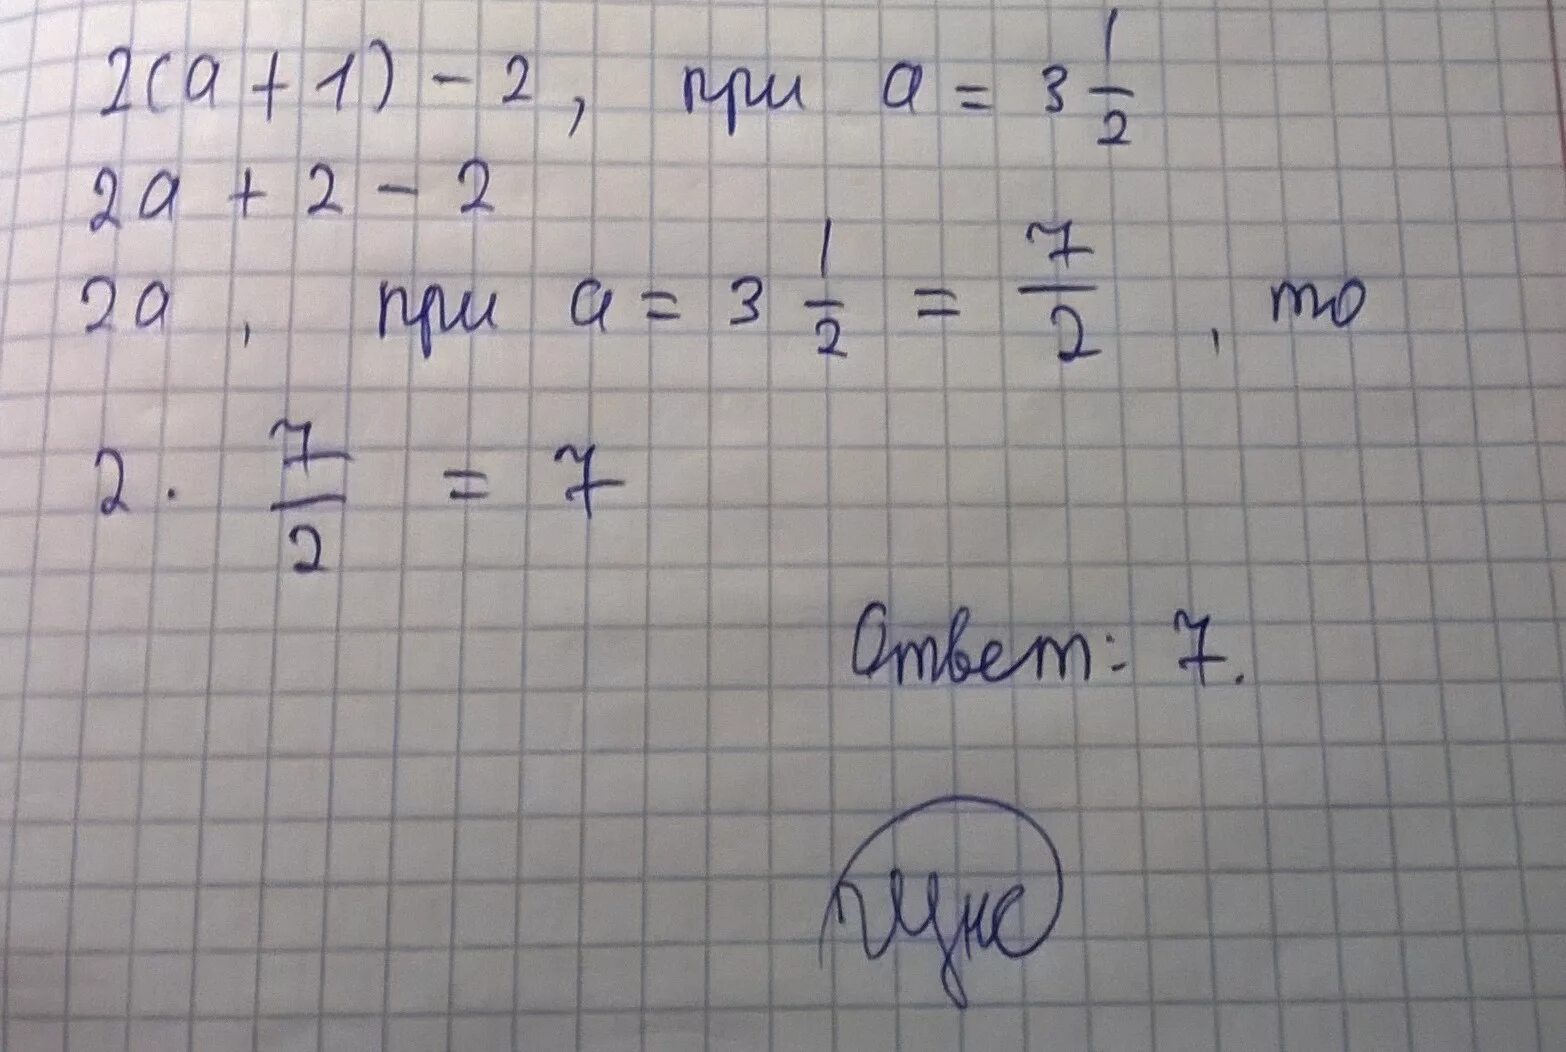 2(a + 1) - 2, при a = 3 1/2
2a + 2 - 2
2a, при a = 3 1/2 = 7/2, то
2 · 7/2 = 7
Ответ: 7.